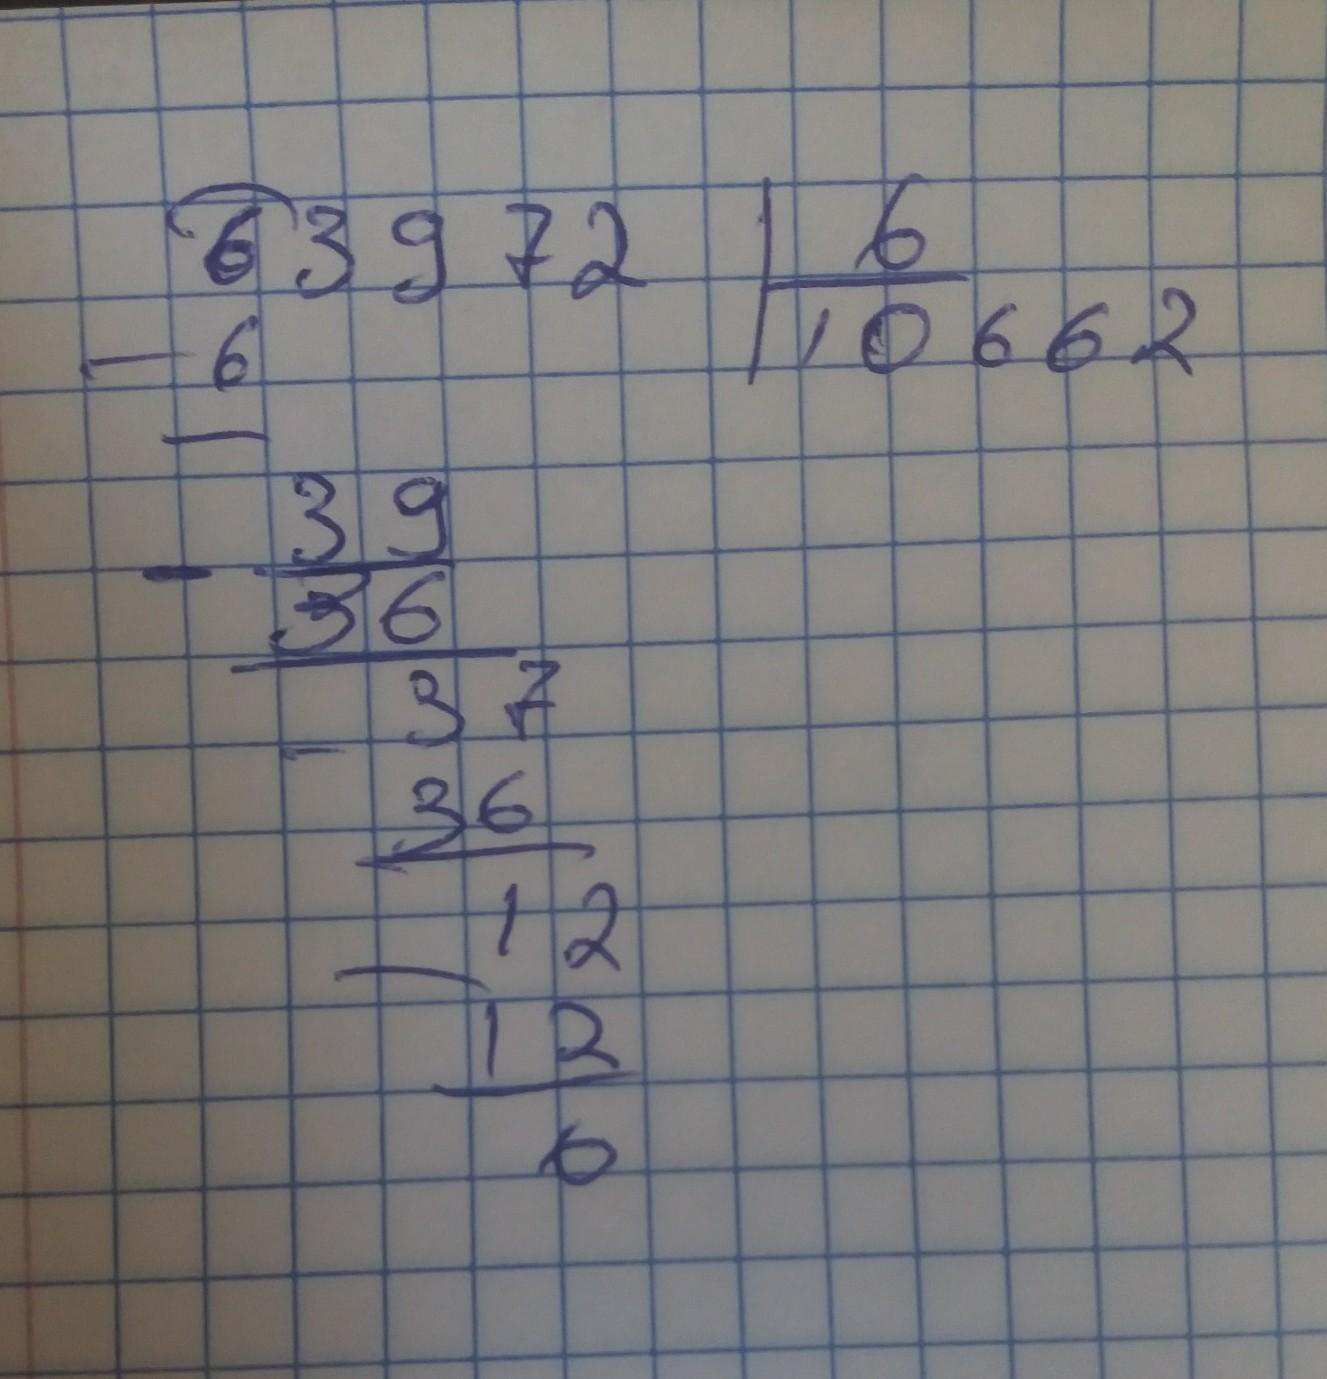 63972 | 6
- 6 | 10662
39
- 36
37
- 36
12
- 12
0